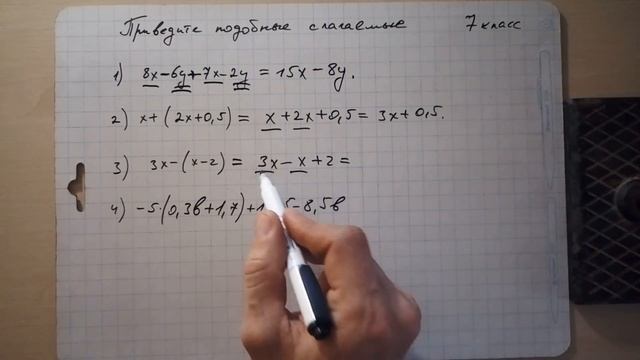 Приведите подобные слагаемые 7 класс
1) 8x-6y+7x-2y = 15x-8y.
2) x+(2x+0,5) = x+2x+0,5 = 3x+0,5.
3) 3x-(x-2) = 3x-x+2 =
4) -5·(0,3в+1,7)+1 5-8,5в